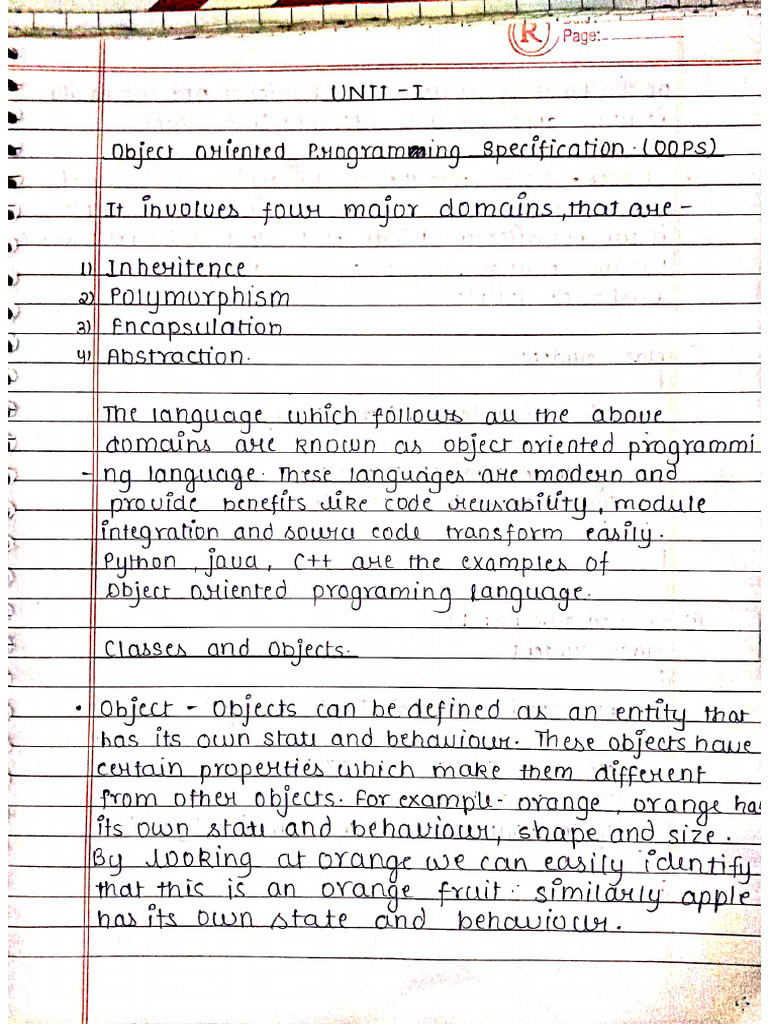 R Page:-
UNIT - I
Object oriented Programming Specification. (OOPS)
It involves four major domains, that are -
1) Inheritence
2) Polymorphism
3) Encapsulation
4) Abstraction.
The language which follows all the above
domains are known as object oriented programmi
- ng language. These languages are modern and
provide benefits like code reusability, module
integration and source code transform easily.
Python, java, C++ are the examples of
Object oriented programing language.
Classes and Objects.
• Object - Objects can be defined as an entity that
has its own state and behaviour. These objects have
certain properties which make them different
from other objects. For example - orange, orange has
its own state and behaviour, shape and size.
By looking at orange we can easily identify
that this is an orange fruit. similarly apple
has its own state and behaviour.